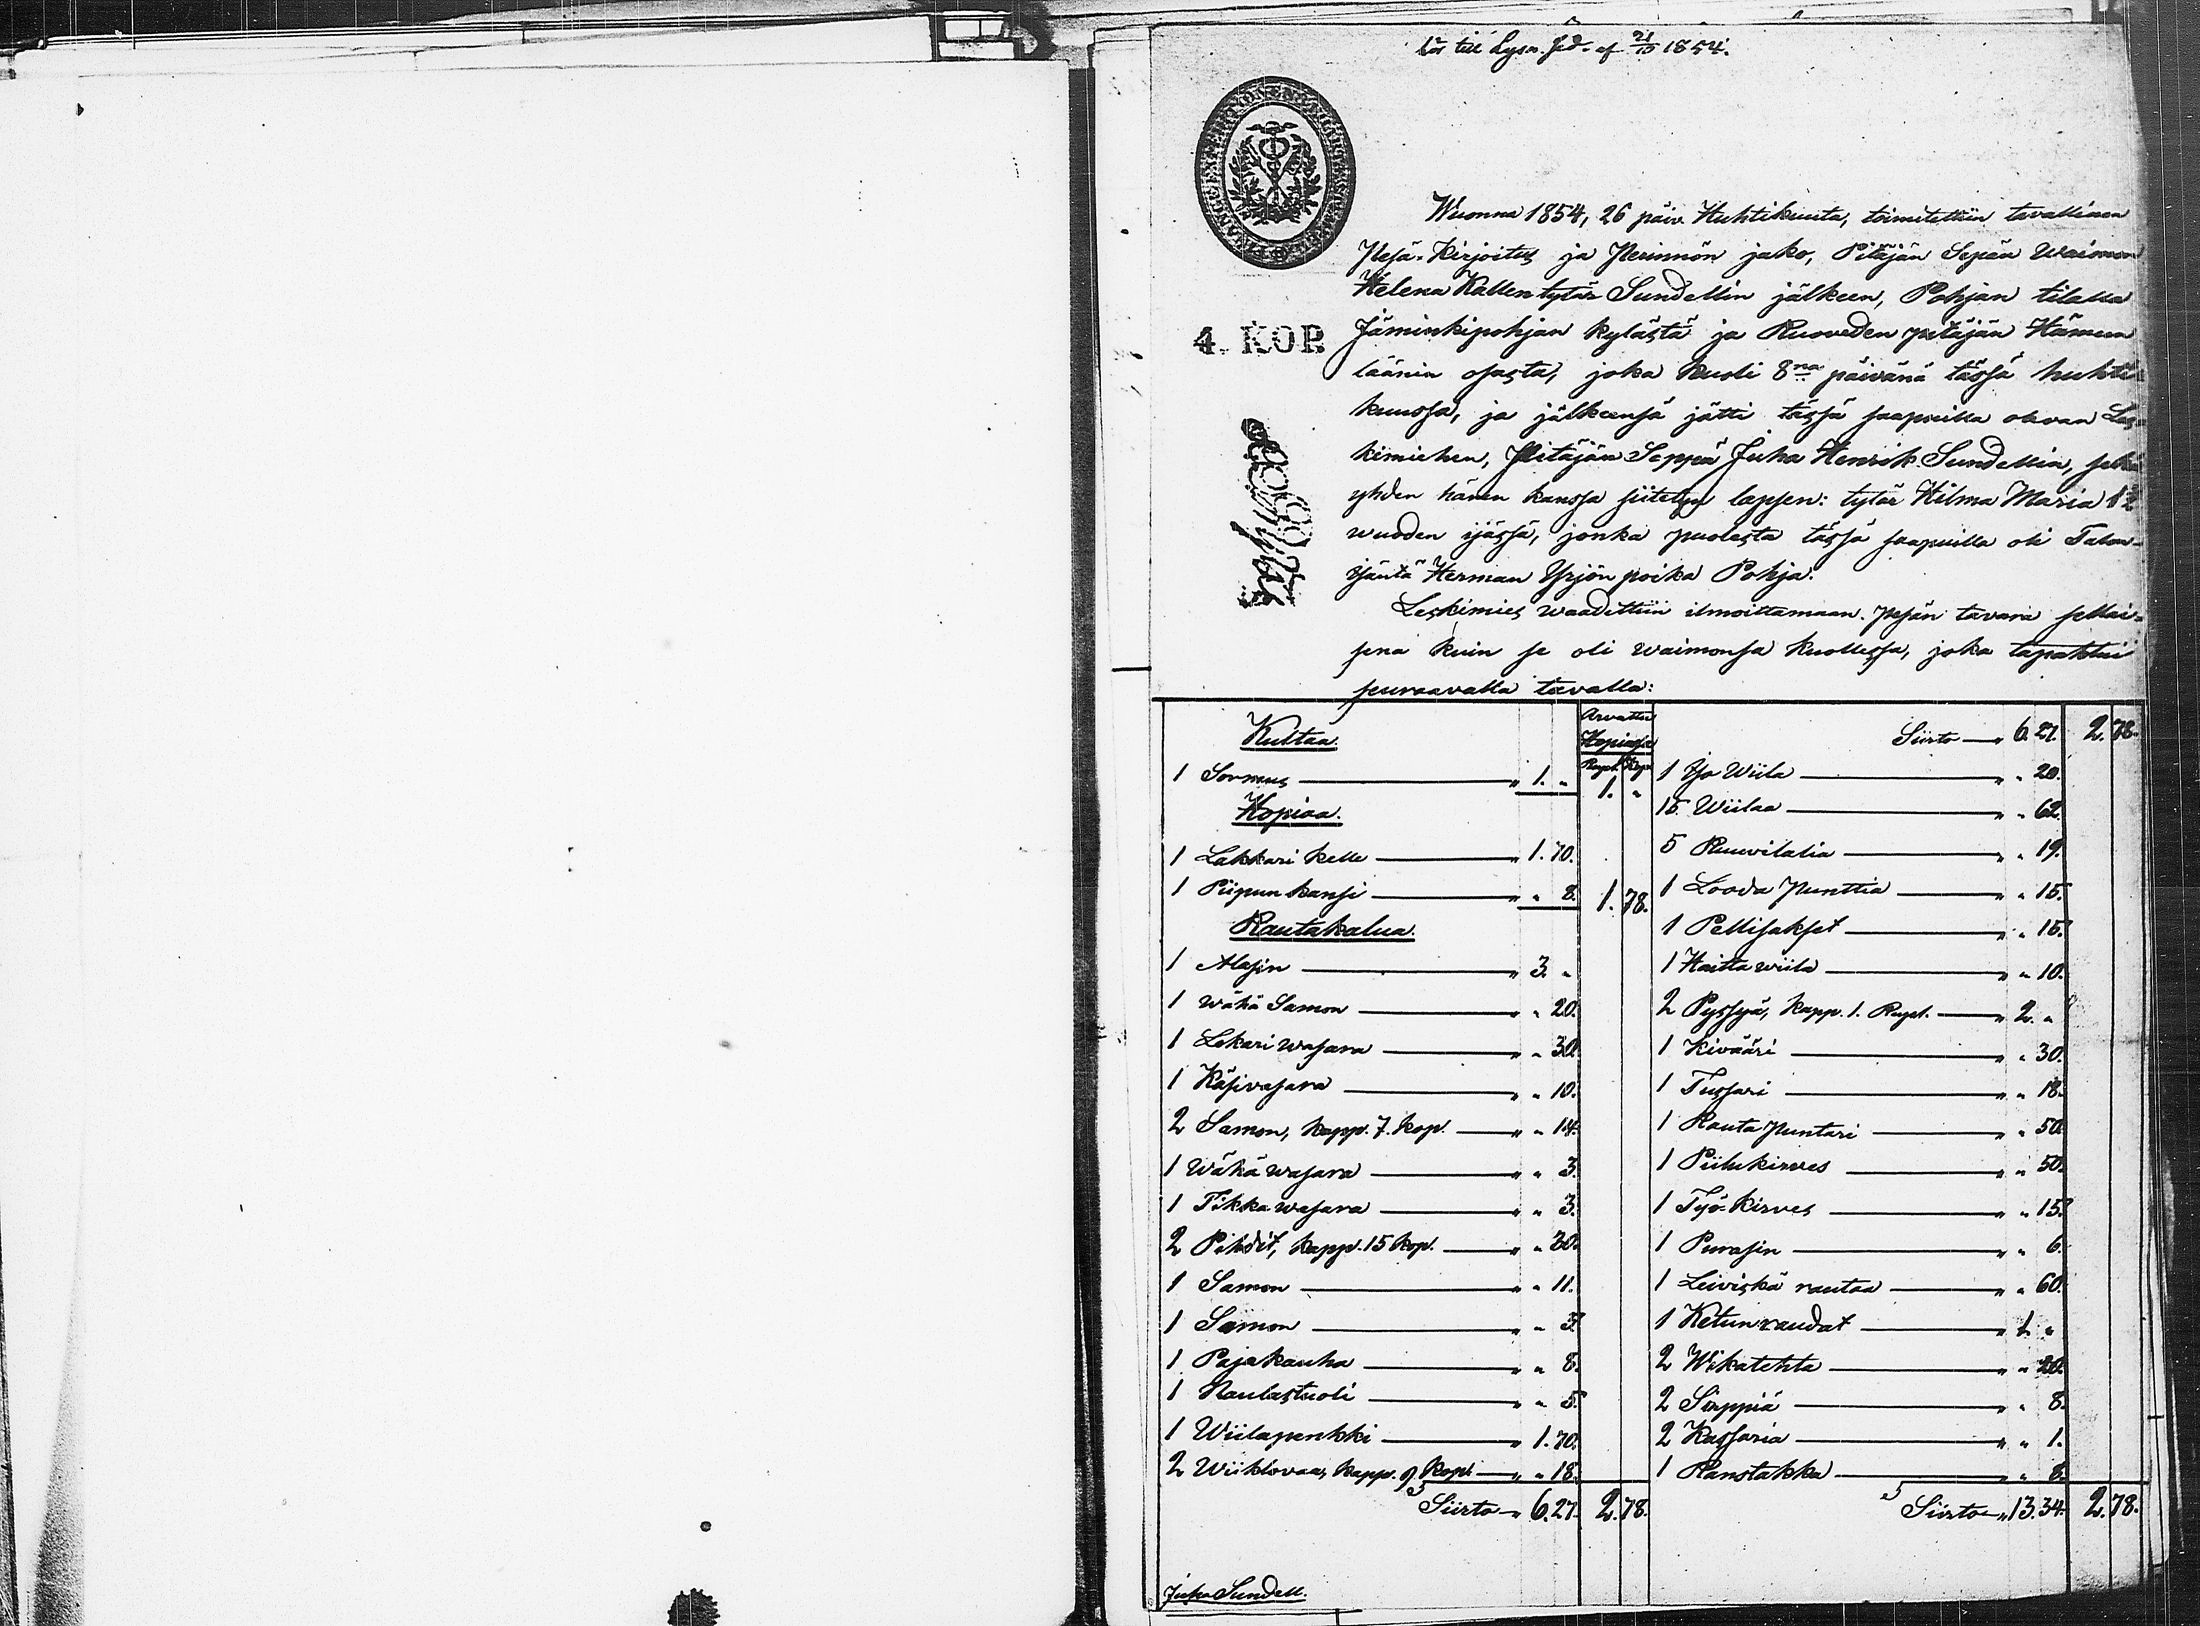 till Lysn. af 21/10 1854.
4. KOP.
Wuonna 1854, 26 päiv. Huhtikuuta, toimitettiin tavallinen
Pesä-Kirjoitus ja Perinnön jako, Pitäjän Sepän Waimon
Helena Kallentytär Sundellin jälkeen, Pohjan tilalla
Jäminkipohjan kylästä ja Ruoveden pitäjän Hämeen
läänin osasta, joka kuoli 8na päivänä tässä huhti-
kuussa, ja jälkeensä jätti tässä saapuilla olevan Les-
kimiehen, Pitäjän Seppä Juha Henrik Sundellin, sekä
yhden hänen kanssa siitetyn lapsen: tytär Hilma Maria 1½
wuoden ijässä, jonka puolesta tässä saapuilla oli Talon-
isäntä Herman Yrjön poika Pohja.
Leskimies waadittiin ilmoittamaan pesän tavara sellai-
sena kuin se oli waimonsa kuollessa, joka tapahtui
seuraavalla tavalla:
Kultaa.
Arvattu
Hopiassa
Rupl. Kop.
1 Sormus — " 1. " 1. "
Hopiaa.
1 Lakkari kello — " 1. 70.
1 Piipun kansi — " " 8. 1. 78.
Rautakalua.
1 Alasin — " 3. "
1 Wähä Samon — " " 20.
1 Lekari wasara — " " 30.
1 Käsivasara — " " 10.
2 Samon, kapp. 7. kop. — " " 14.
1 Wähä wasara — " " 3.
1 Tikka wasara — " " 3.
2 Pihdit, kapp. 15 kop. — " " 30.
1 Samon — " " 11.
1 Samon — " " 3.
1 Paja kauha — " " 8.
1 Naulastuoli — " " 5.
1 Wiilapenkki — " 1. 70.
2 kapp. 9 kop. — " " 18.
Siirto — " 6. 27. 2. 78.
Siirto — " 6. 27. 2. 78.
1 Iso Wiila — " " 20.
15 Wiilaa — " " 62.
5 Ruuvilalia — " " 19.
1 Looda Punttia — " " 15.
1 Pellisakset — " " 15.
1 wiila — " " 10.
2 Pyssyä, kapp. 1. Rupl. — " 2. "
1 Kivääri — " " 30.
1 Tussari — " " 18.
1 Rauta Puntari — " " 50.
1 Piilukirves — " " 50.
1 Työ-kirves — " " 15.
1 Purasin — " " 6.
1 Leiviskä rautaa — " " 60.
1 Ketunraudat — " 1. "
2 Wikatehta — " " 20.
2 Sirppiä — " " 8.
2 Kassaria — " " 1.
1 — " " 8.
Siirto — " 13. 34. 2. 78.
Juha Sundell.